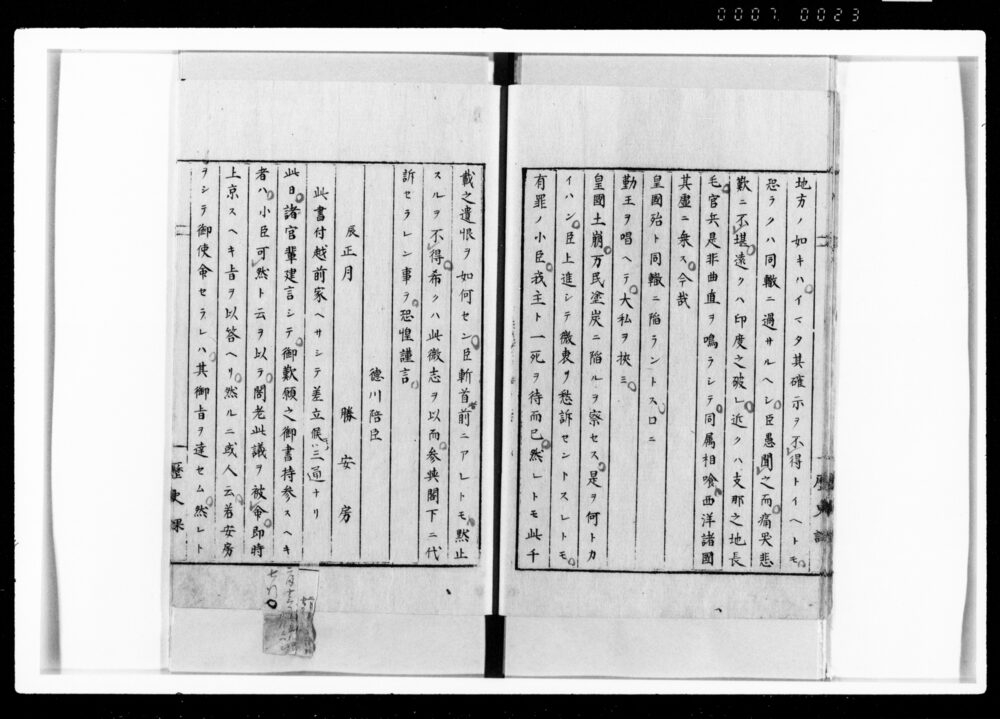 0007 0023
地方ノ如キハイマタ其確示ヲ不得トイヘトモ
恐ラクハ同轍ニ過サルヘシ臣愚聞之而痛哭悲
歎ニ不堪遠クハ印度之破レ近クハ支那之地長
毛官兵是非曲直ヲ鳴ラシテ同属相喰西洋諸國
其虚ニ乗ス今哉
皇國殆ト同轍ニ陥ラントスロニ
勤王ヲ唱ヘテ大私ヲ挾ミ
皇國土崩万民塗炭ニ陥ルヲ察セス是ヲ何トカ
イハン臣上進シテ微衷ヲ愁訴セントスレトモ
有罪ノ小臣我主ト一死ヲ待而已然レトモ此千
歴史課
載之遺恨ヲ如何セン臣斬首前ニアレトモ黙止
スルヲ不得希クハ此微志ヲ以而参與閣下ニ代
訴セラレン事ヲ恐惶謹言
德川陪臣
辰正月 勝安房
此書付越前家ヘサシテ差立候三通ナリ
此日諸官輩建言シテ御歎願之御書持参スヘキ
者ハ小臣可然ト云ヲ以テ閣老此議ヲ被命即時
上京スヘキ旨ヲ以答ヘリ然ルニ或人云若安房
ヲシテ御使命セラレハ其御旨ヲ達セム然レト
歴史課